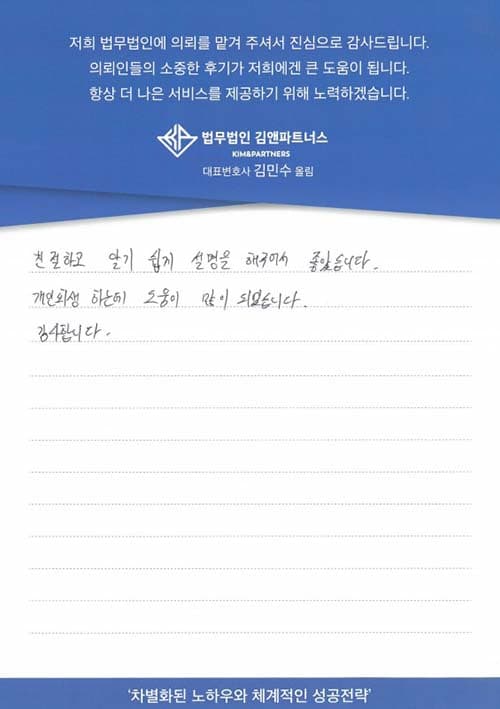 저희 법무법인에 의뢰를 맡겨 주셔서 진심으로 감사드립니다.
의뢰인들의 소중한 후기가 저희에겐 큰 도움이 됩니다.
항상 더 나은 서비스를 제공하기 위해 노력하겠습니다.
법무법인 김앤파트너스
KIM&PARTNERS
대표변호사 김민수 올림
친절하고 알기 쉽게 설명을 해주어서 좋았습니다.
개인회생 하는데 도움이 많이 되었습니다.
감사합니다.
'차별화된 노하우와 체계적인 성공전략'